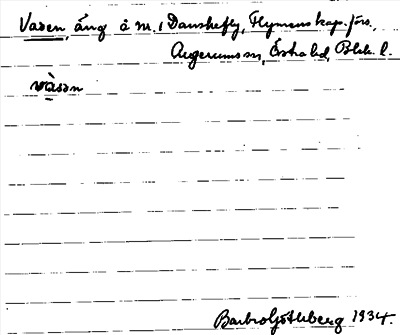 Vaden, äng å m. 1 Danskefly, Flymens kap. förs.,
Augerums sn, Östra hd, Blek. l.
vàsən
Barbro Götheberg 1934.